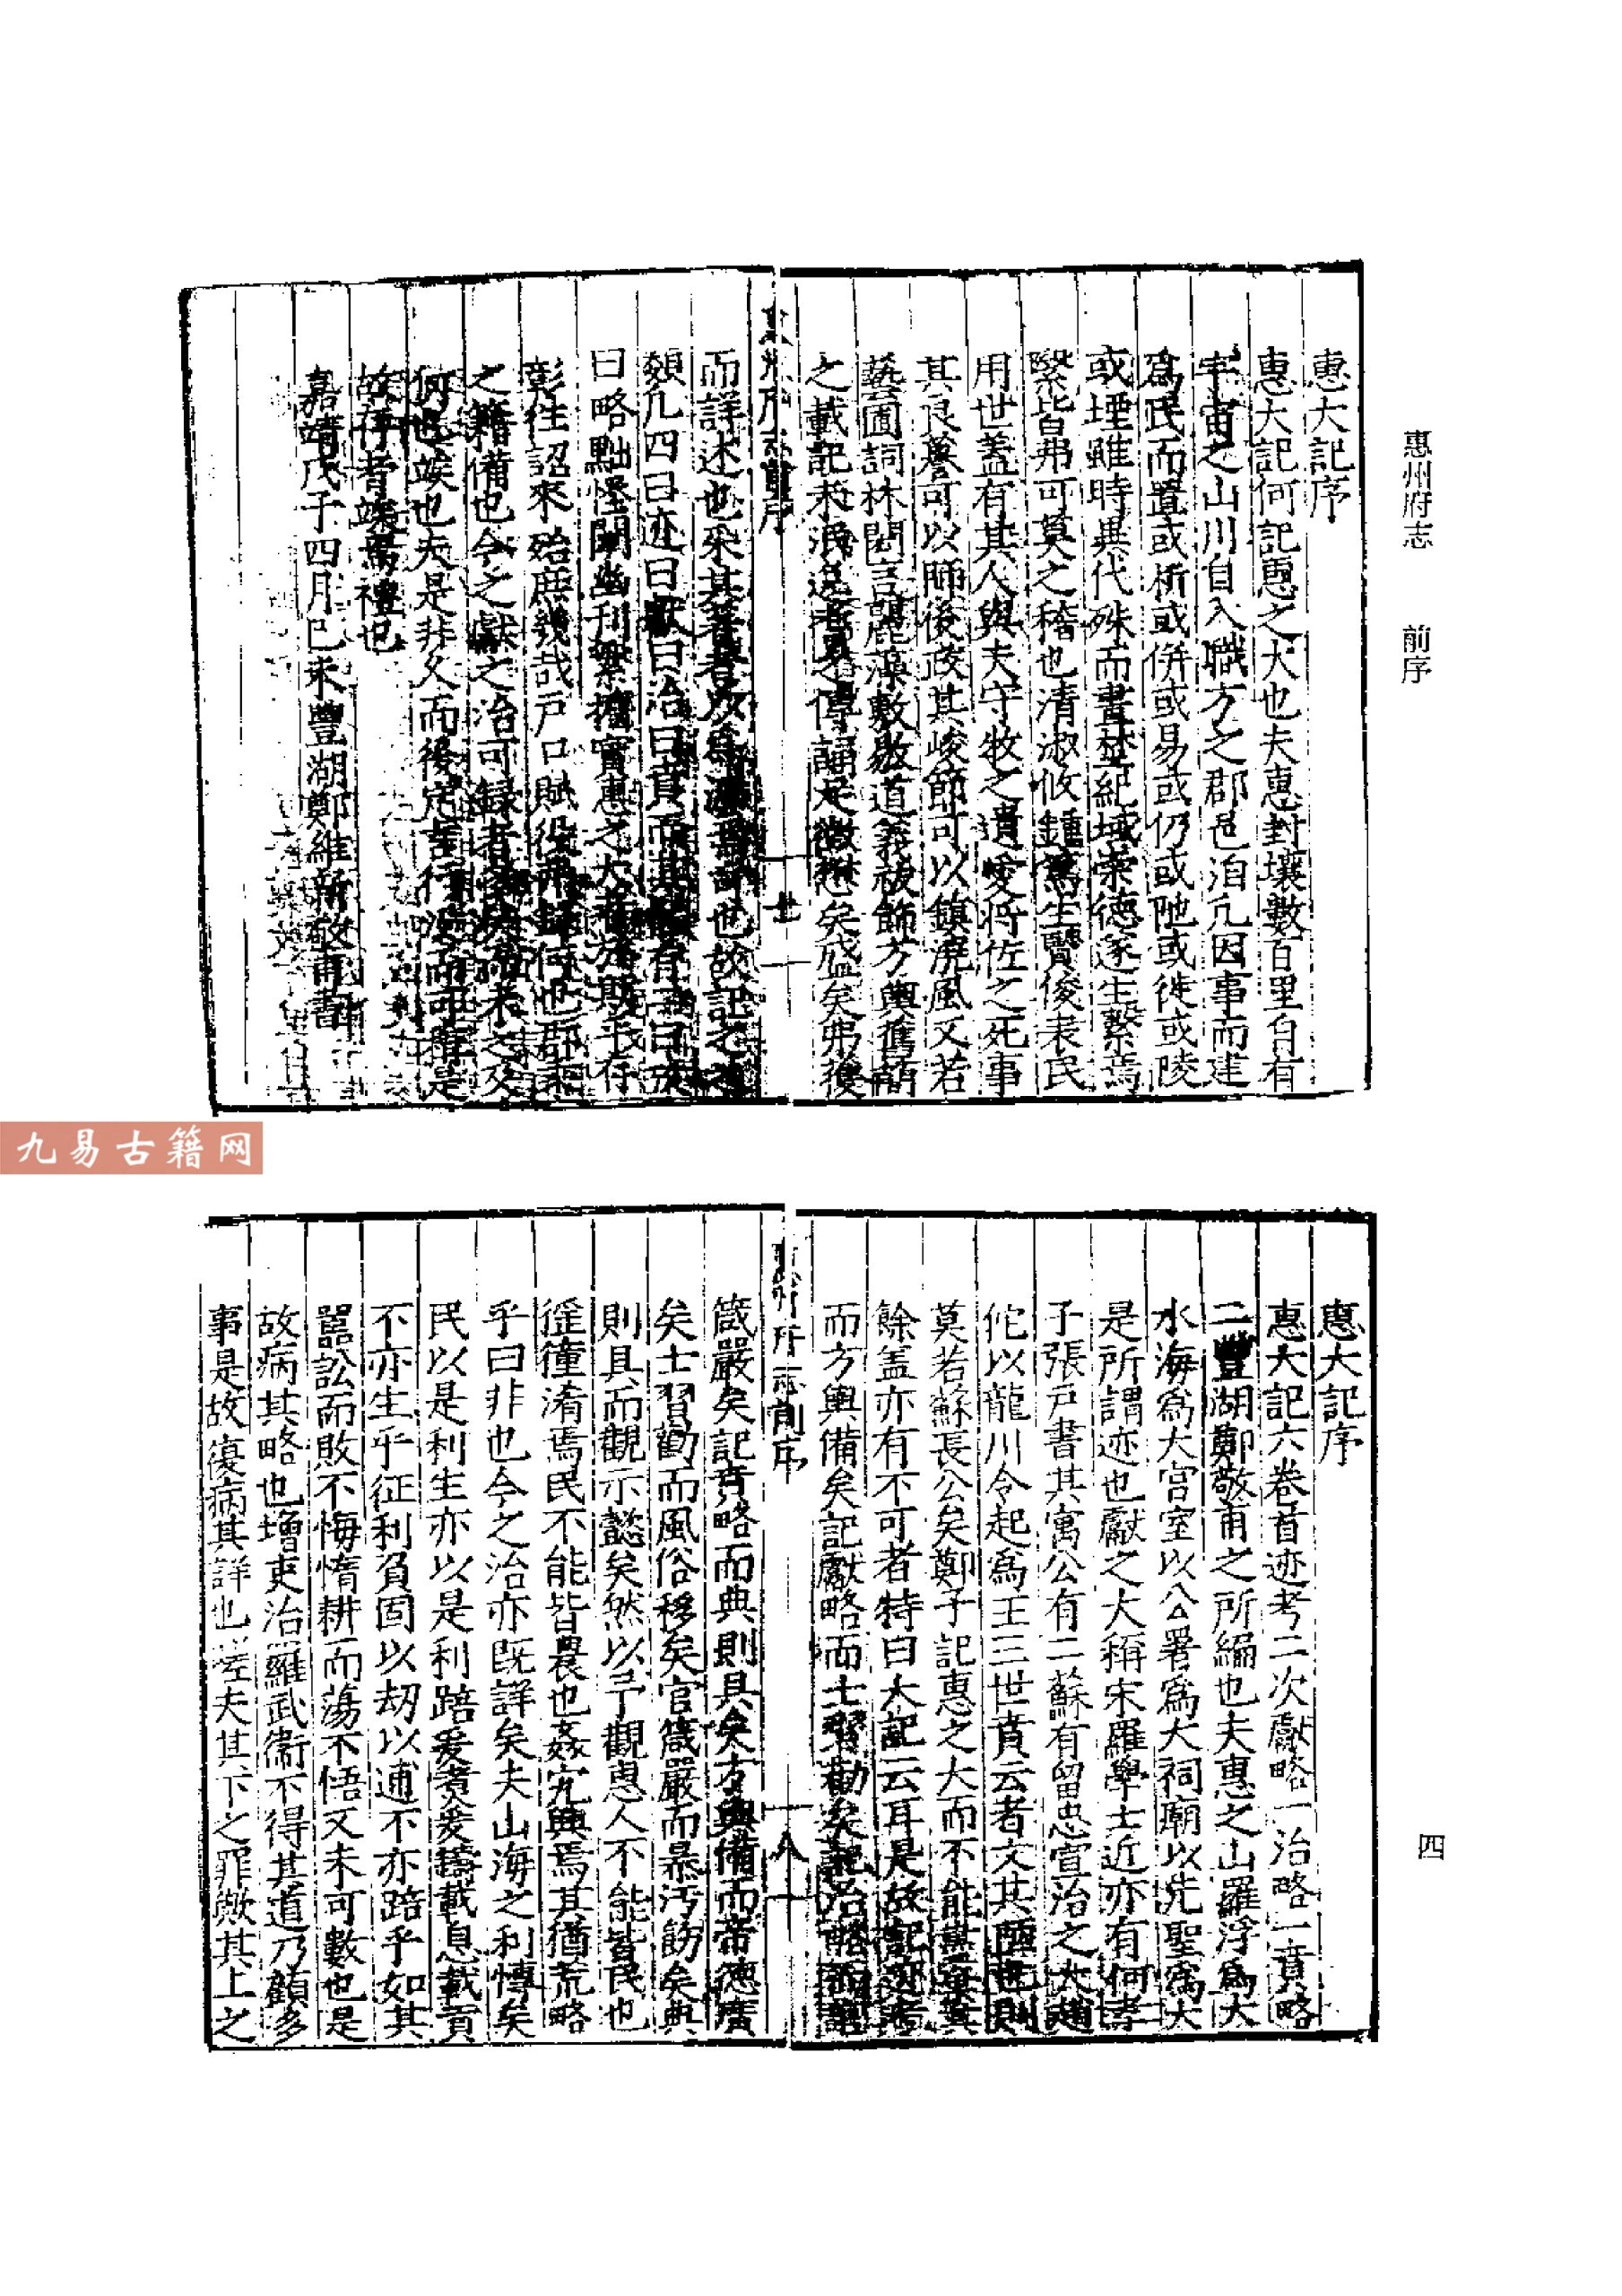 惠州府志　前序
惠大記序
惠大記何記惠之大也夫惠封壤數百里自有
宇宙之山川自入職方之郡邑洎凡因事而建
爲氏而置或析或併或易或仍或阤或徙或陵
或堙雖時異代殊而書埜紀域崇德遂生繫焉
繄皆弗可莫之稽也清淑攸鍾篤生賢俊表民
用世蓋有其人與夫守牧之遺愛將佐之死事
其良驀可以師後政其峻節可以鎮澆風又若
藝圃詞林閎言麗藻敷敭道義祓飾方輿舊誚
之載記未泯逸老之傳誦足徵懋矣盛矣弗獲
而詳述也采其著者以爲 也故記之
類凡四曰迹曰獻曰治曰賁而其 有
曰略黜怪闡幽刊繁摭實惠之大 於斯乎存
彰徃詔來殆庶幾哉戶口賦役 何也郡
之籍備也今之獻之治可録者 未之及
何也竢也夫是非久而後定 是
故存者竢焉禮也
嘉靖戊子四月己未豐湖鄭維新敬甫書
惠大記序
惠大記六卷首迹考二次獻略一治略一賁略
二豐湖鄭敬甫之所編也夫惠之山羅浮爲大
水海爲大宮室以公署爲大祠廟以先聖爲大
是所謂迹也獻之大稱宋羅學士近亦有何孝
子張戶書其寓公有二蘇有留忠宣治之大趙
佗以龍川令起爲王三世賁云者文其 則
莫若蘇長公矣鄭子記惠之大而不能
餘盖亦有不可者特曰大記云耳是故記迹考
而方輿備矣記獻略而士習勸矣記治略而官
箴嚴矣記賁略而典則具矣方輿備而帝德廣
矣士習勸而風俗移矣官箴嚴而暴汚飭矣典
則具而觀示懿矣然以予觀惠人不能皆民也
徭獞淆焉民不能皆農也姦宄興焉其猶荒略
乎曰非也今之治亦既詳矣夫山海之利博矣
民以是利生亦以是利踣爰煑爰鑄載息載貢
不亦生乎征利負固以刼以逋不亦踣乎如其
嚚訟而敗不悔惰耕而蕩不悟又未可數也是
故病其略也增吏治羅武衞不得其道乃顧多
事是故復病其詳也嗟夫其下之罪歟其上之
四
九易古籍网